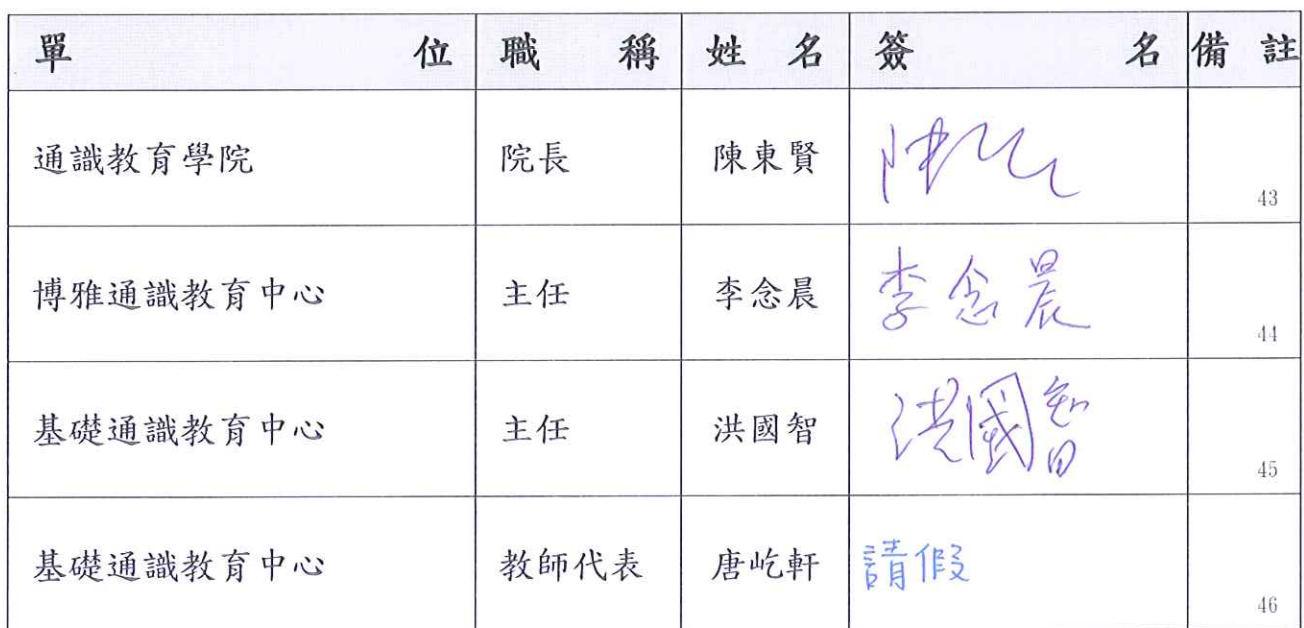 單位 職稱 姓名 簽名 備註
通識教育學院 院長 陳東賢 陳 43
博雅通識教育中心 主任 李念晨 李念晨 44
基礎通識教育中心 主任 洪國智 洪國智 45
基礎通識教育中心 教師代表 唐屹軒 請假 46